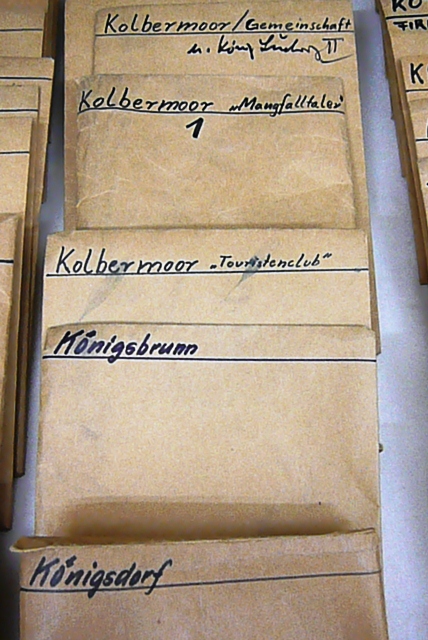 Kolbermoor/Gemeinschaft
u. König Ludwig II
Kolbermoor „Mangfalltaler"
1
Kolbermoor „Touristenclub"
Königsbrunn
Königsdorf
KO
FIR
K